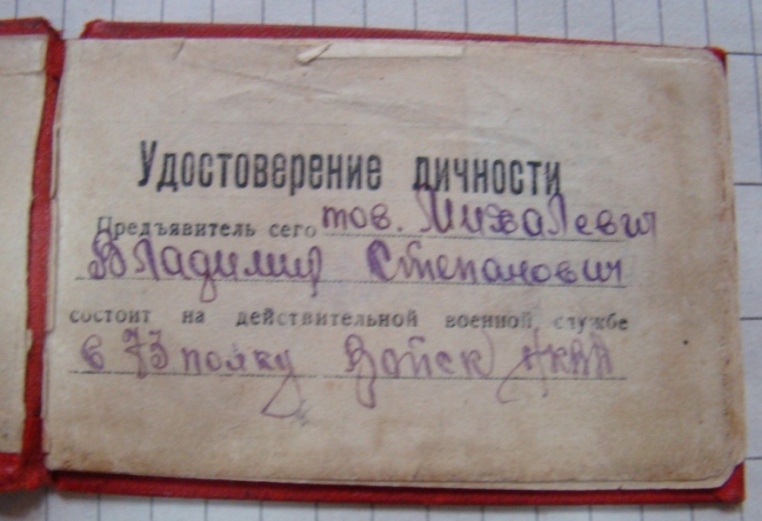 Удостоверение личности
Предъявитель сего тов. Михалевич
Владимир Степанович
состоит на действительной военной службе
в 73 полку Войск НКВД